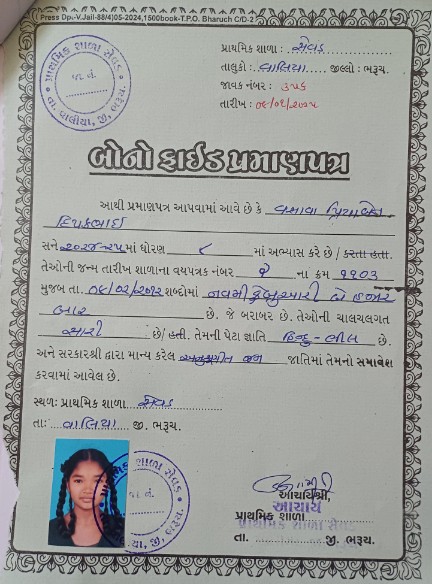 Press Dp.-V.Jail-88/4)05-2024,1500book-T.P.O. Bharuch C/D-2
પ્રાથમિક શાળા : સેવડ
તાલુકો : વાલિયા જીલ્લો : ભરૂચ.
જાવક નંબર :
તારીખ :
પ્રાથમિક શાળા સેવડ
જા. નં.
તા. વાલીયા, જી. ભરૂચ.
બોનોફાઈડ પ્રમાણપત્ર
આથી પ્રમાણપત્ર આપવામાં આવે છે કે વસાવા પ્રિયાબેન
દિપકભાઈ
સને ૨૦૨૪-૨૫ માં ધોરણ ૮ માં અભ્યાસ કરે છે / કરતા હતા.
તેઓની જન્મ તારીખ શાળાના વયપત્રક નંબર ના ક્રમ ૧૧૦૩
મુજબ તા. ૦૯/૦૨/૨૦૧૨ શબ્દોમાં નવમી ફેબ્રુઆરી બે હજાર
બાર છે. જે બરાબર છે. તેઓની ચાલચલગત
સારી છે/ હતી. તેમની પેટા જ્ઞાતિ હિન્દુ-ભીલ છે.
અને સરકારશ્રી દ્વારા માન્ય કરેલ અનુસુચીત જન જાતિમાં તેમનો સમાવેશ
કરવામાં આવેલ છે.
સ્થળ: પ્રાથમિક શાળા સેવડ
તા: વાલિયા જી. ભરૂચ.
શાળા સેવડ
જા. નં.
યા, જી. ભરૂચ.
આચાર્યશ્રી,
આચાર્ય
પ્રાથમિક શાળા
પ્રાથમિક શાળા સેવડ
તા. જી. ભરૂચ.